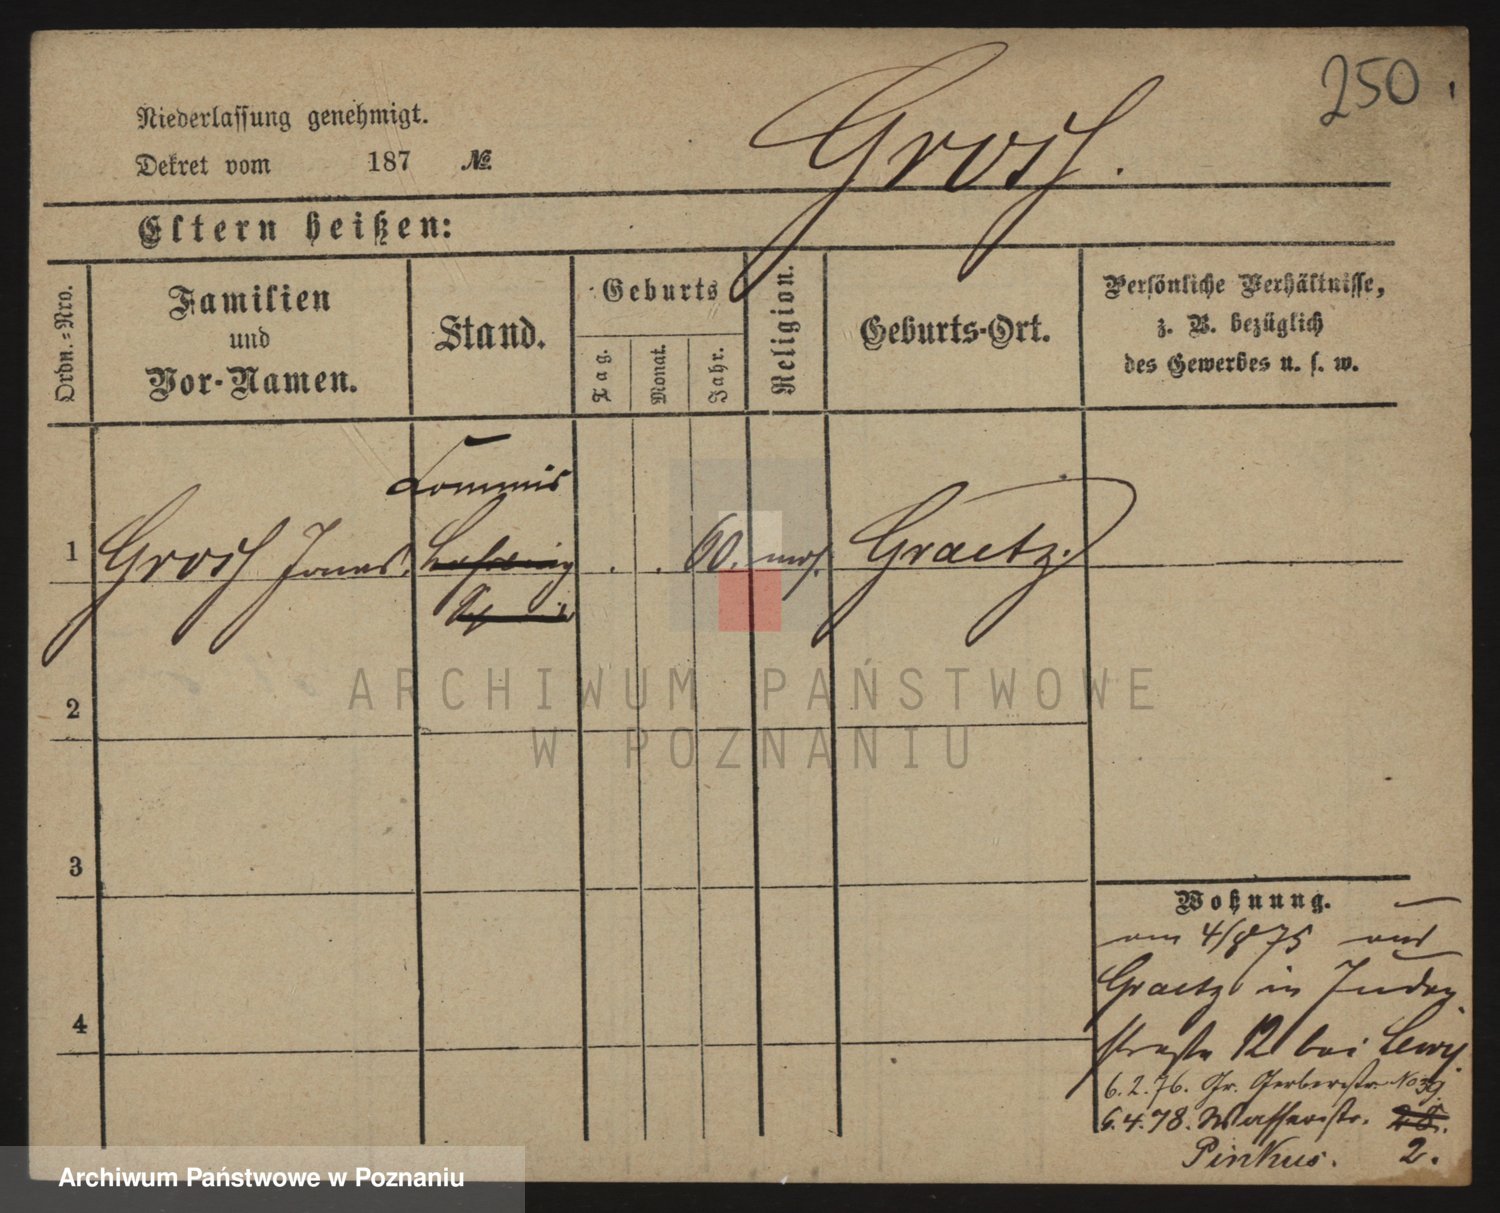 250
Niederlassung genehmigt.
Dekret vom 187 №
Grosz.
Eltern heißen:
Ordn.=Nro.
Familien
und
Vor-Namen.
Stand.
Geburts
Tag.
Monat.
Jahr.
Religion.
Geburts-Ort.
Persönliche Verhältnisse,
z. B. bezüglich
des Gewerbes u. s. w.
Commis
1 Grosz Jonas. . . 60. mos. Graetz.
ARCHIWUM PAŃSTWOWE
W POZNANIU
2
3
4
Wohnung.
am 4/8 75 aus
Graetz in Juden
straße 12 bei Lewy.
6.2.76. Gr. Gerberstr. No 39.
6.4.78. Wasserstr.
Pinkus. 2.
Archiwum Państwowe w Poznaniu